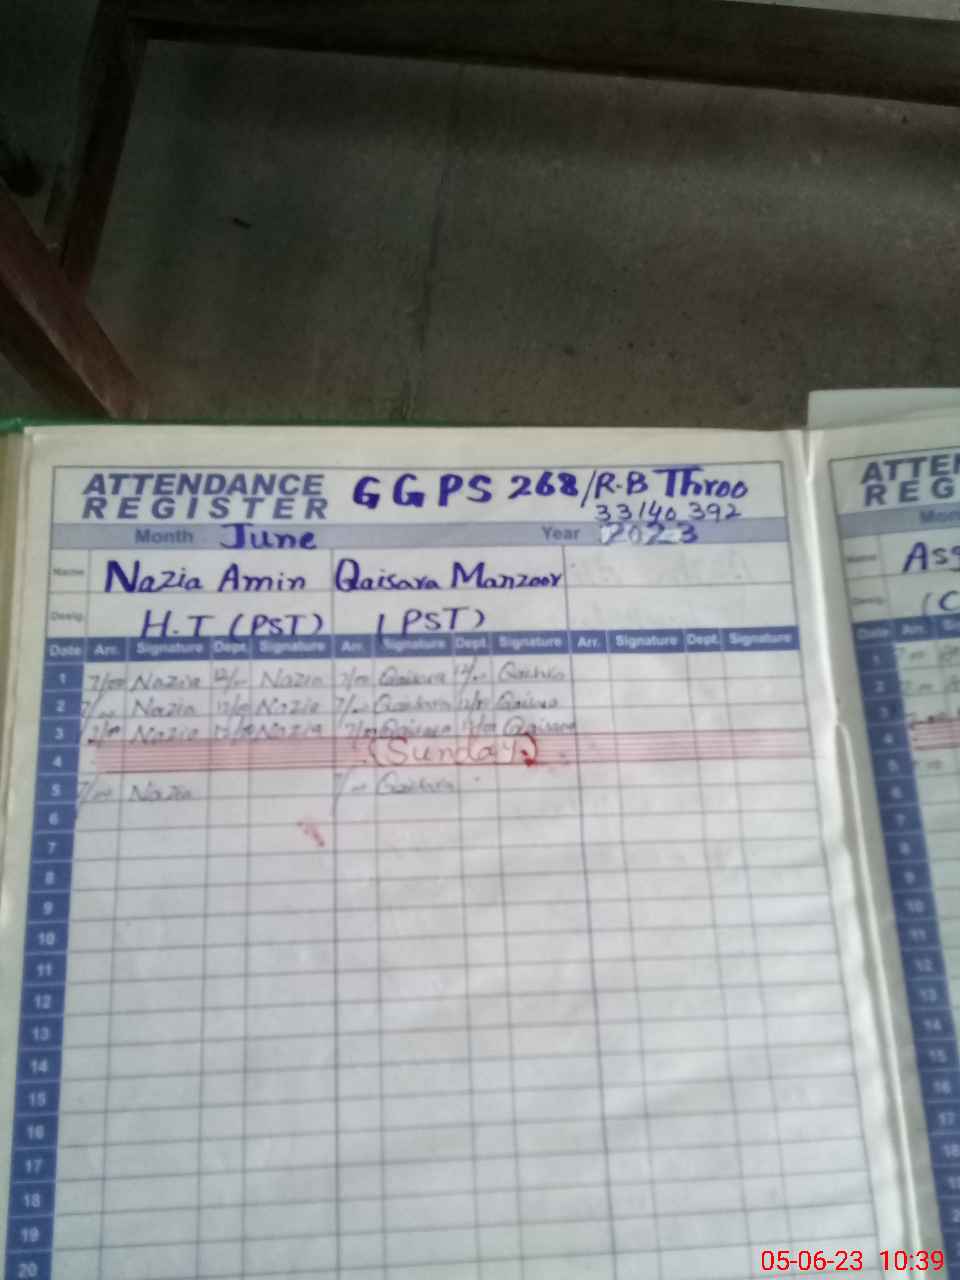 ATTENDANCE REGISTER GGPS 268/R-B Throo
33140392
Month June Year 2023
Name Nazia Amin Qaisara Manzoor
Desig. H.T (PST) (PST)
Date Arr. Signature Dept. Signature Arr. Signature Dept. Signature Arr. Signature Dept. Signature
1 7/00 Nazia 12/00 Nazia 7/00 Qaisara 12/00
2 7/00 Nazia 12/00 Nazia 7/00 Qaisara 12/00 Qaisara
3 Nazia 12/00 Nazia 7/00 Qaisara 12/00 Qaisara
4 (Sunday)
5 7/00 Nazia 7/00 Qaisara
6
7
8
9
10
11
12
13
14
15
16
17
18
19
20
ATTEN
REG
Mon
Name Ass
Desig. (C
Date Arr. Si
1
2
3
4
5
6
7
8
9
10
11
12
13
14
15
16
17
18
05-06-23 10:39